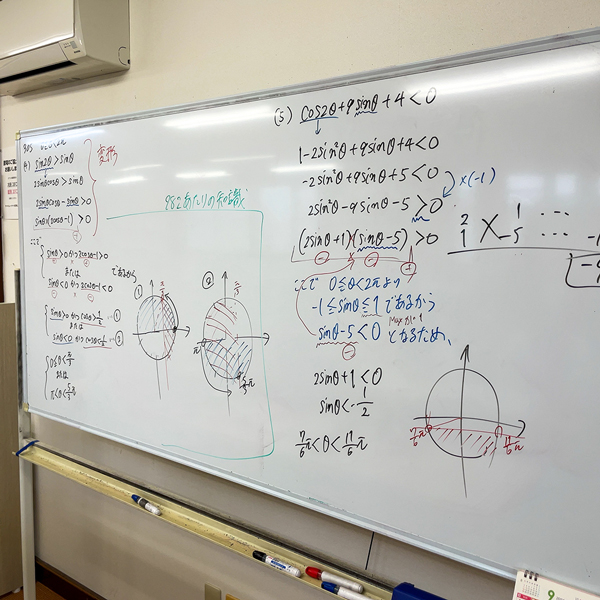 305 0≦θ<2π
(4) sin2θ>sinθ
2sinθcosθ>sinθ
2sinθcosθ-sinθ>0
sinθ×(2cosθ-1)>0
変形
ここで
sinθ>0かつ2cosθ-1>0
または
sinθ<0かつ2cosθ-1<0
であるから
sinθ>0かつcosθ>1/2 ①
または
sinθ<0かつcosθ<1/2 ②
0<θ<π/3
または
π<θ<5/3π
982あたりの知識
①
π/3
②
π/3
π
5/3π
(5) cos2θ+9sinθ+4<0
1-2sin²θ+9sinθ+4<0
-2sin²θ+9sinθ+5<0
×(-1)
2sin²θ-9sinθ-5>0
(2sinθ+1)(sinθ-5)>0
2 1 ...
1 -5 ...
ここで 0≦θ<2πより
-1≦sinθ≦1であるから
Maxが1
sinθ-5<0 となるため、
2sinθ+1<0
sinθ<-1/2
7/6π<θ<11/6π
7/6π
11/6π
9